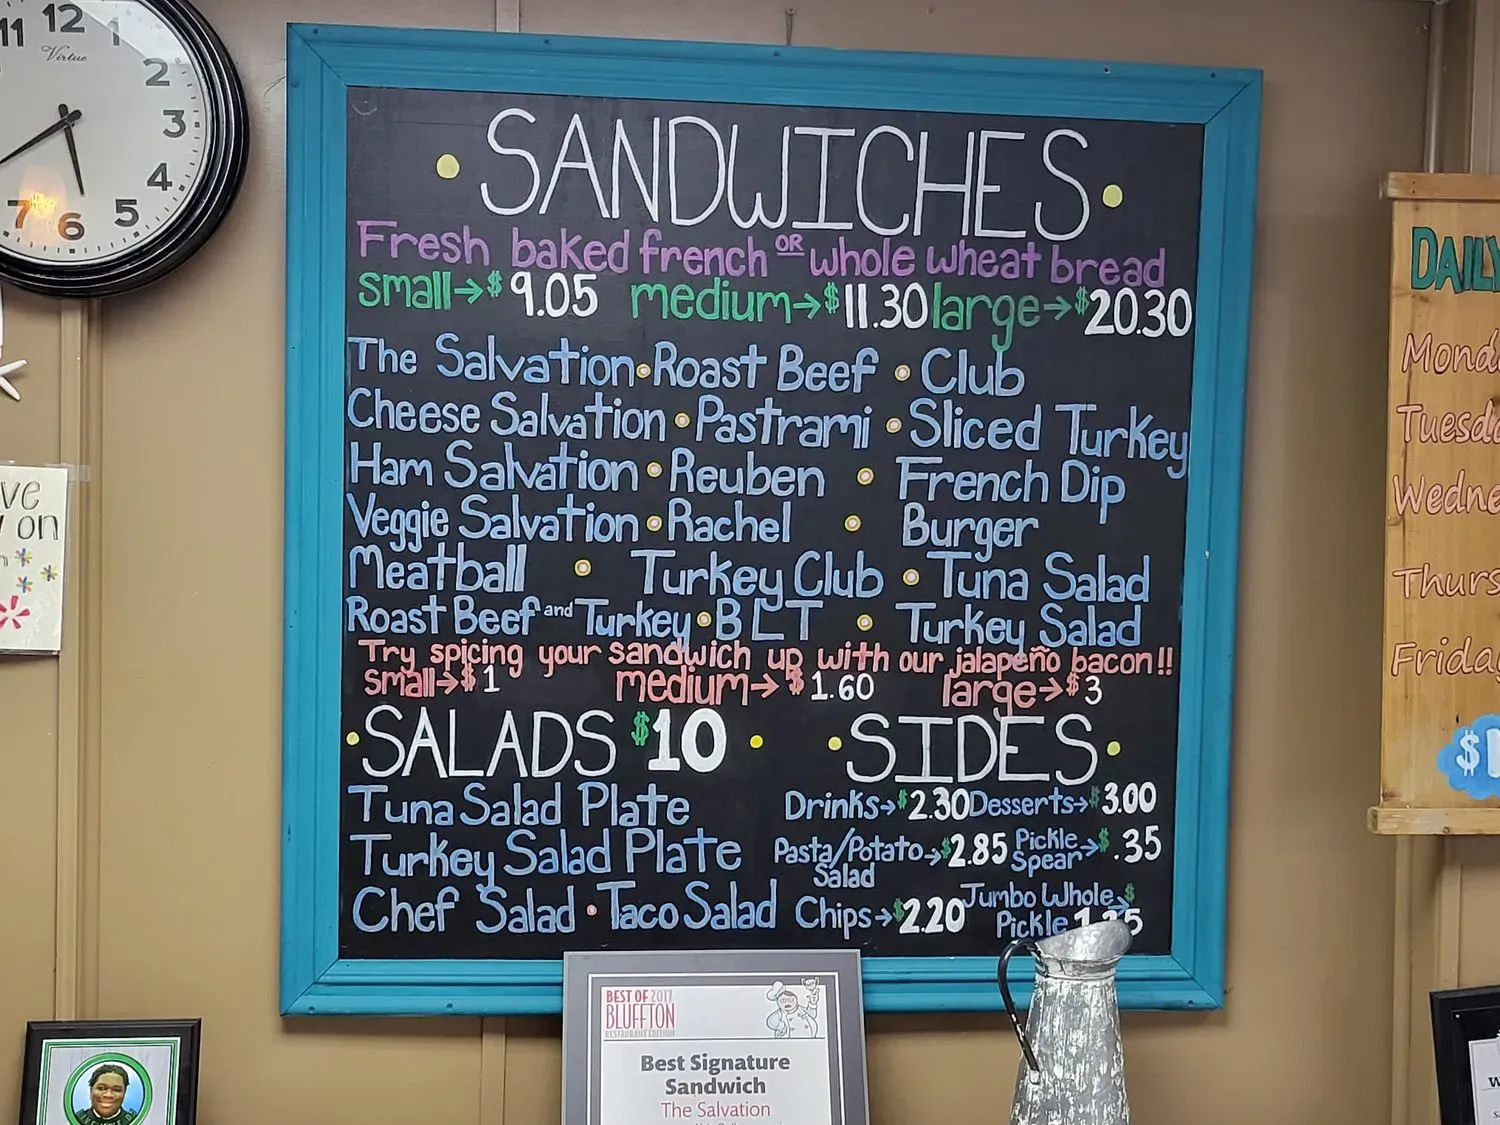 11 12 1
Virtue
2
3
4
5
6
7
SANDWICHES
Fresh baked french OR whole wheat bread
small→$9.05 medium→$11.30 large→$20.30
The Salvation • Roast Beef • Club
Cheese Salvation • Pastrami • Sliced Turkey
Ham Salvation • Reuben • French Dip
Veggie Salvation • Rachel • Burger
Meatball • Turkey Club • Tuna Salad
Roast Beef and Turkey • BLT • Turkey Salad
Try spicing your sandwich up with our jalapeño bacon!!
small→$1 medium→$1.60 large→$3
• SALADS $10 •
Tuna Salad Plate
Turkey Salad Plate
Chef Salad • Taco Salad
• SIDES •
Drinks→$2.30 Desserts→$3.00
Pasta/Potato Salad→$2.85 Pickle Spear→$.35
Chips→$2.20 Jumbo Whole Pickle→$
BEST OF 2017
BLUFFTON
RESTAURANT EDITION
Best Signature
Sandwich
The Salvation
ve
on
DAILY
Monda
Tuesda
Wednes
Thurs
Friday
$1